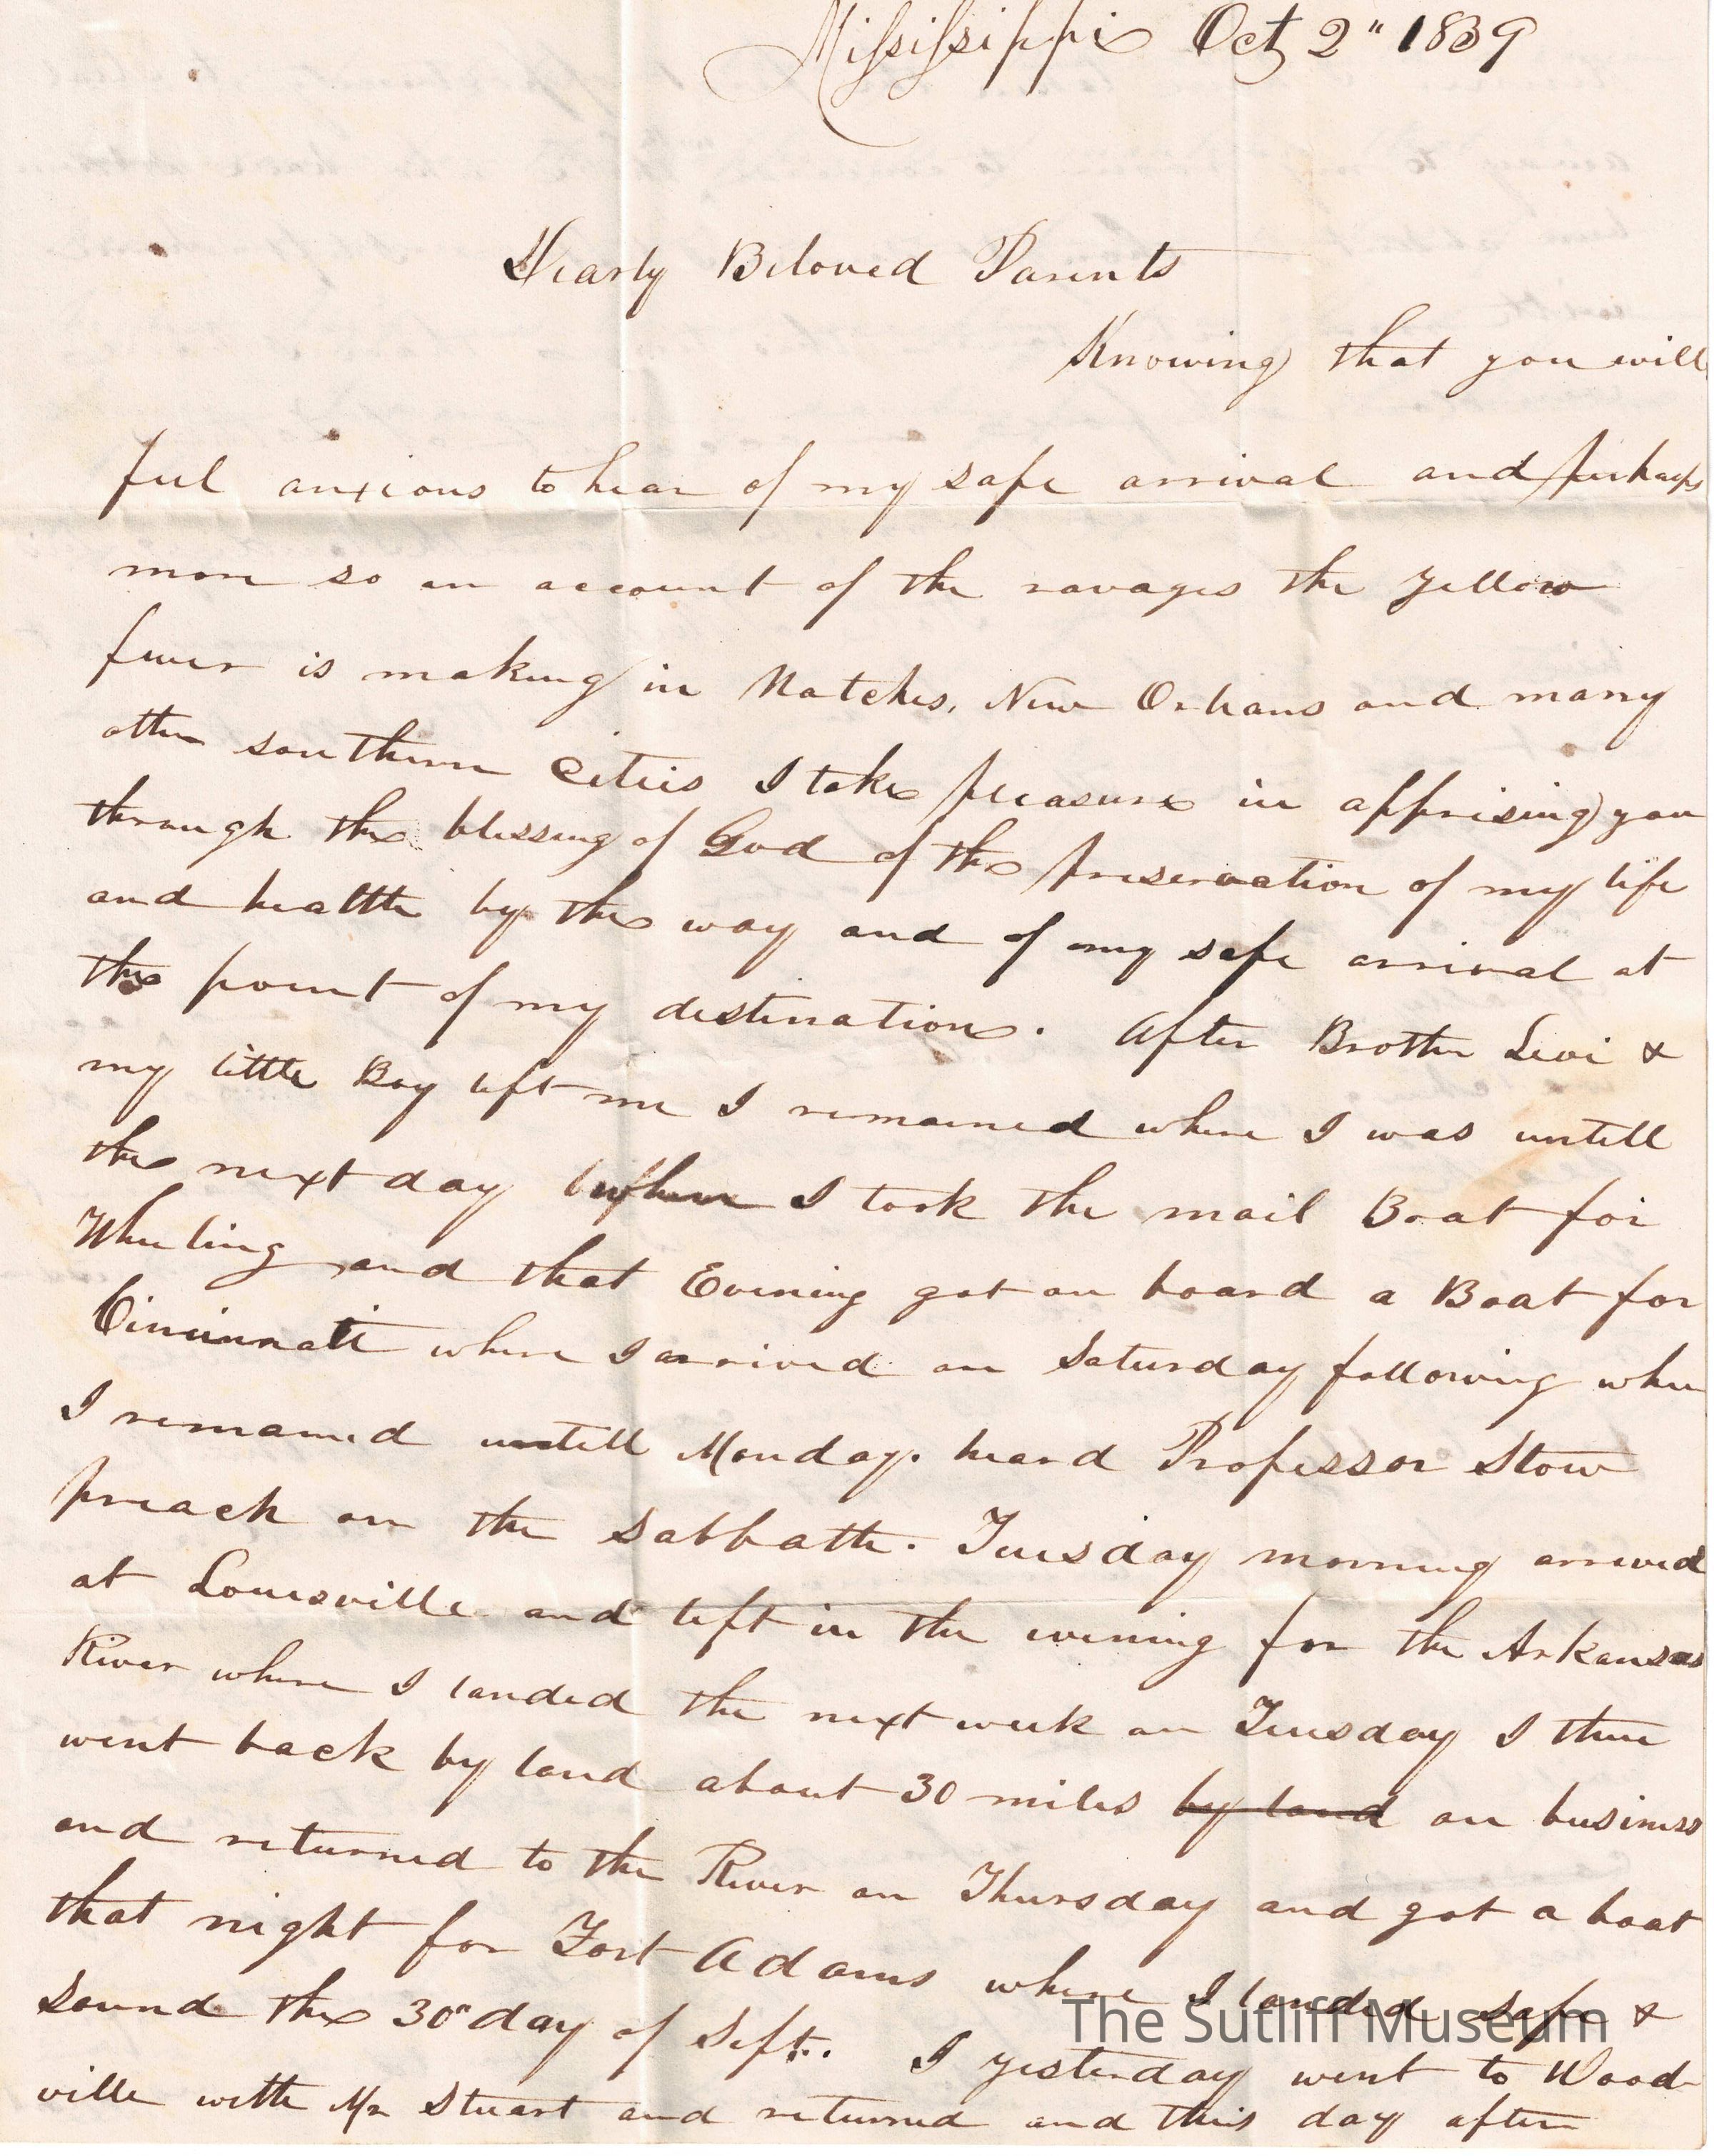 Mississippi Oct 2" 1839
Dearly Beloved Parents
Knowing that you will
feel anxious to hear of my safe arrival and perhaps
more so on account of the ravages the yellow
fever is making in Natches, New Orleans and many
other southern Cities I take pleasure in apprising you
through the blessing of God of the preservation of my life
and health by the way and of my safe arrival at
the point of my destination. After Brother Levi &
my little Boy left me I remained where I was untill
the next day when I took the mail Boat for
Wheeling and that Evening got on board a Boat for
Cincinnatti where I arrived on Saturday following wher
I remained untill Monday. heard Professor Stow
preach on the Sabbath. Tuesday morning arrived
at Louisville and left in the evening for the Arkansas
River where I landed the next week on Tuesday I then
went back by land about 30 miles by land on business
and returned to the River on Thursday and got a boat
that night for Fort Adams where I landed safe &
sound the 30" day of Sept. I yesterday went to Wood-
ville with Mr Stuart and returned and this day after
The Sutliff Museum